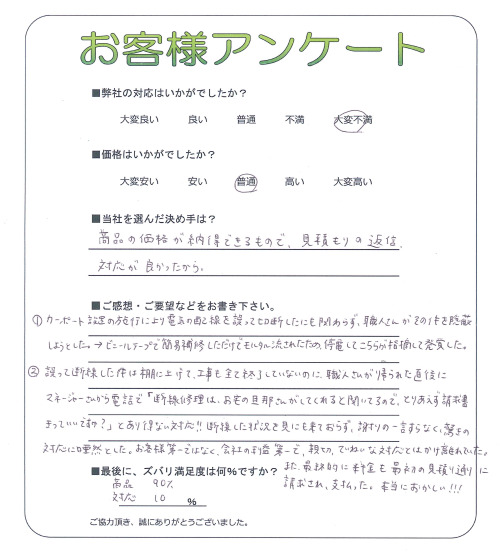 お客様アンケート
■弊社の対応はいかがでしたか？
大変良い 良い 普通 不満 大変不満
■価格はいかがでしたか？
大変安い 安い 普通 高い 大変高い
■当社を選んだ決め手は？
商品の価格が納得できるもので、見積もりの返信、
対応が良かったから。
■ご感想・ご要望などをお書き下さい。
① カーポート設置の施行により電気の配線を誤って切断したにも関わらず、職人さんがその件を隠蔽
しようとした。→ビニールテープで簡易補修しただけでモルタル流されたため、停電してこちらが指摘して発覚した。
② 誤って断線した件は棚に上げて、工事も全て終了していないのに、職人さんが帰られた直後に
マネージャーさんから電話で「断線修理は、お宅の旦那さんがしてくれると聞いてるので、とりあえず請求書
まわしていいですか？」とあり得ない対応!! 断線した状況を見にも来ておらず、謝りの一言すらなく、驚きの
対応に唖然とした。お客様第一ではなく、会社の利益第一で、親切、ていねいな対応とはかけ離れていた。
また、最終的に料金も最初の見積り通りに
請求され、支払った。本当におかしい!!!
■最後に、ズバリ満足度は何％ですか？
商品 90%
対応 10 %
ご協力頂き、誠にありがとうございました。